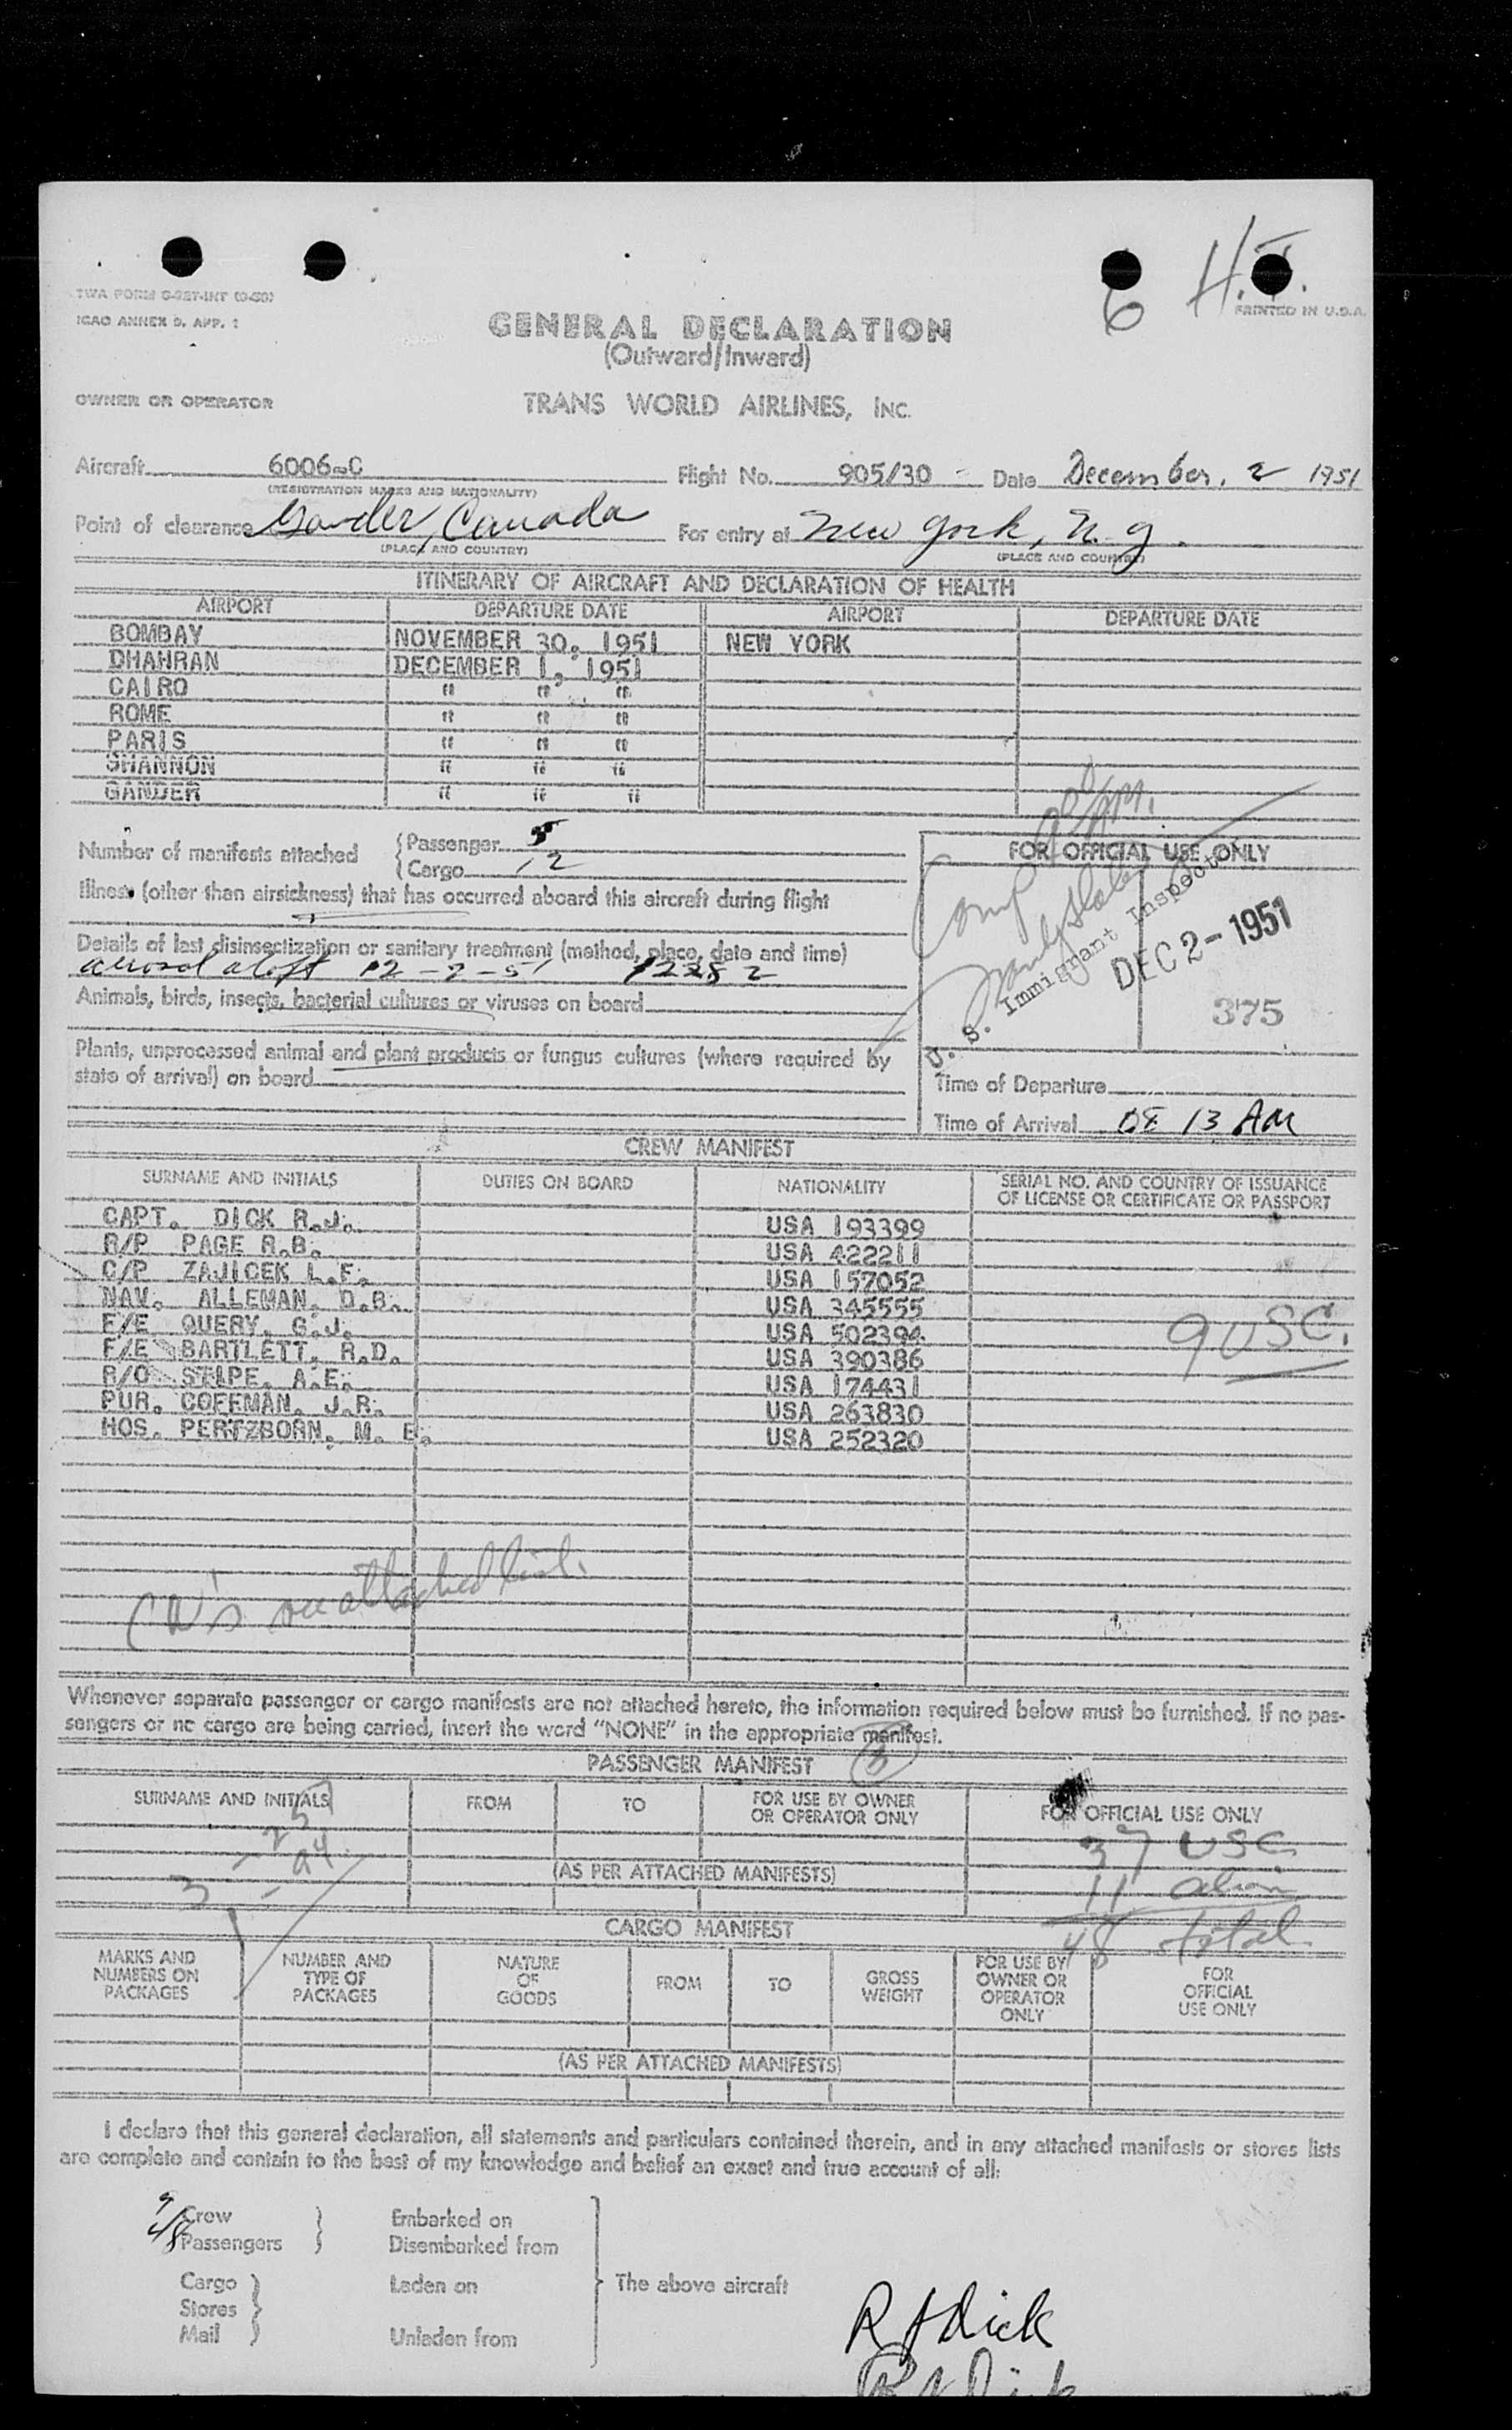 6 H.T.
TWA FORM C-927-INT (9-50)
ICAO ANNEX 9, APP. 1
PRINTED IN U.S.A.
GENERAL DECLARATION
(Outward/Inward)
OWNER OR OPERATOR TRANS WORLD AIRLINES, INC.
Aircraft 6006-C Flight No. 905/30 - Date December, 2 1951
(REGISTRATION MARKS AND NATIONALITY)
Point of clearance Gander, Canada For entry at New York, N.Y.
(PLACE AND COUNTRY) (PLACE AND COUNTRY)
ITINERARY OF AIRCRAFT AND DECLARATION OF HEALTH
AIRPORT DEPARTURE DATE AIRPORT DEPARTURE DATE
BOMBAY NOVEMBER 30, 1951 NEW YORK
DHAHRAN DECEMBER 1, 1951
CAIRO " " "
ROME " " "
PARIS " " "
SHANNON " " "
GANDER " " "
Number of manifests attached { Passenger 5
{ Cargo 12
FOR OFFICIAL USE ONLY
Illness (other than airsickness) that has occurred aboard this aircraft during flight
Details of last disinsectization or sanitary treatment (method, place, date and time)
aerosol aloft 12-2-51
Animals, birds, insects, bacterial cultures or viruses on board
U. S. Immigrant Inspector
DEC 2 - 1951
375
Plants, unprocessed animal and plant products or fungus cultures (where required by
state of arrival) on board
Time of Departure
Time of Arrival 08 13 AM
CREW MANIFEST
SURNAME AND INITIALS DUTIES ON BOARD NATIONALITY SERIAL NO. AND COUNTRY OF ISSUANCE OF LICENSE OR CERTIFICATE OR PASSPORT
CAPT. DICK R.J. USA 193399
R/P PAGE R.B. USA 422211
C/P ZAJICEK L.F. USA 157052
NAV. ALLEMAN, D.B. USA 345555
F/E QUERY, G.J. USA 502394
F/E BARTLETT, R.D. USA 390386
R/O STIPE, A.E. USA 174431
PUR. COFFMAN, J.R. USA 263830
HOS. PERTZBORN, M. E. USA 252320
9 USC.
see attached list.
Whenever separate passenger or cargo manifests are not attached hereto, the information required below must be furnished. If no pas-
sengers or no cargo are being carried, insert the word "NONE" in the appropriate manifest.
PASSENGER MANIFEST
SURNAME AND INITIALS FROM TO FOR USE BY OWNER OR OPERATOR ONLY FOR OFFICIAL USE ONLY
37 USC
(AS PER ATTACHED MANIFESTS)
11 alien
48 total
CARGO MANIFEST
MARKS AND NUMBERS ON PACKAGES NUMBER AND TYPE OF PACKAGES NATURE OF GOODS FROM TO GROSS WEIGHT FOR USE BY OWNER OR OPERATOR ONLY FOR OFFICIAL USE ONLY
(AS PER ATTACHED MANIFESTS)
I declare that this general declaration, all statements and particulars contained therein, and in any attached manifests or stores lists
are complete and contain to the best of my knowledge and belief an exact and true account of all:
9 Crew Embarked on
48 Passengers Disembarked from
Cargo Laden on The above aircraft
Stores
Mail Unladen from
R J Dick
R J Dick